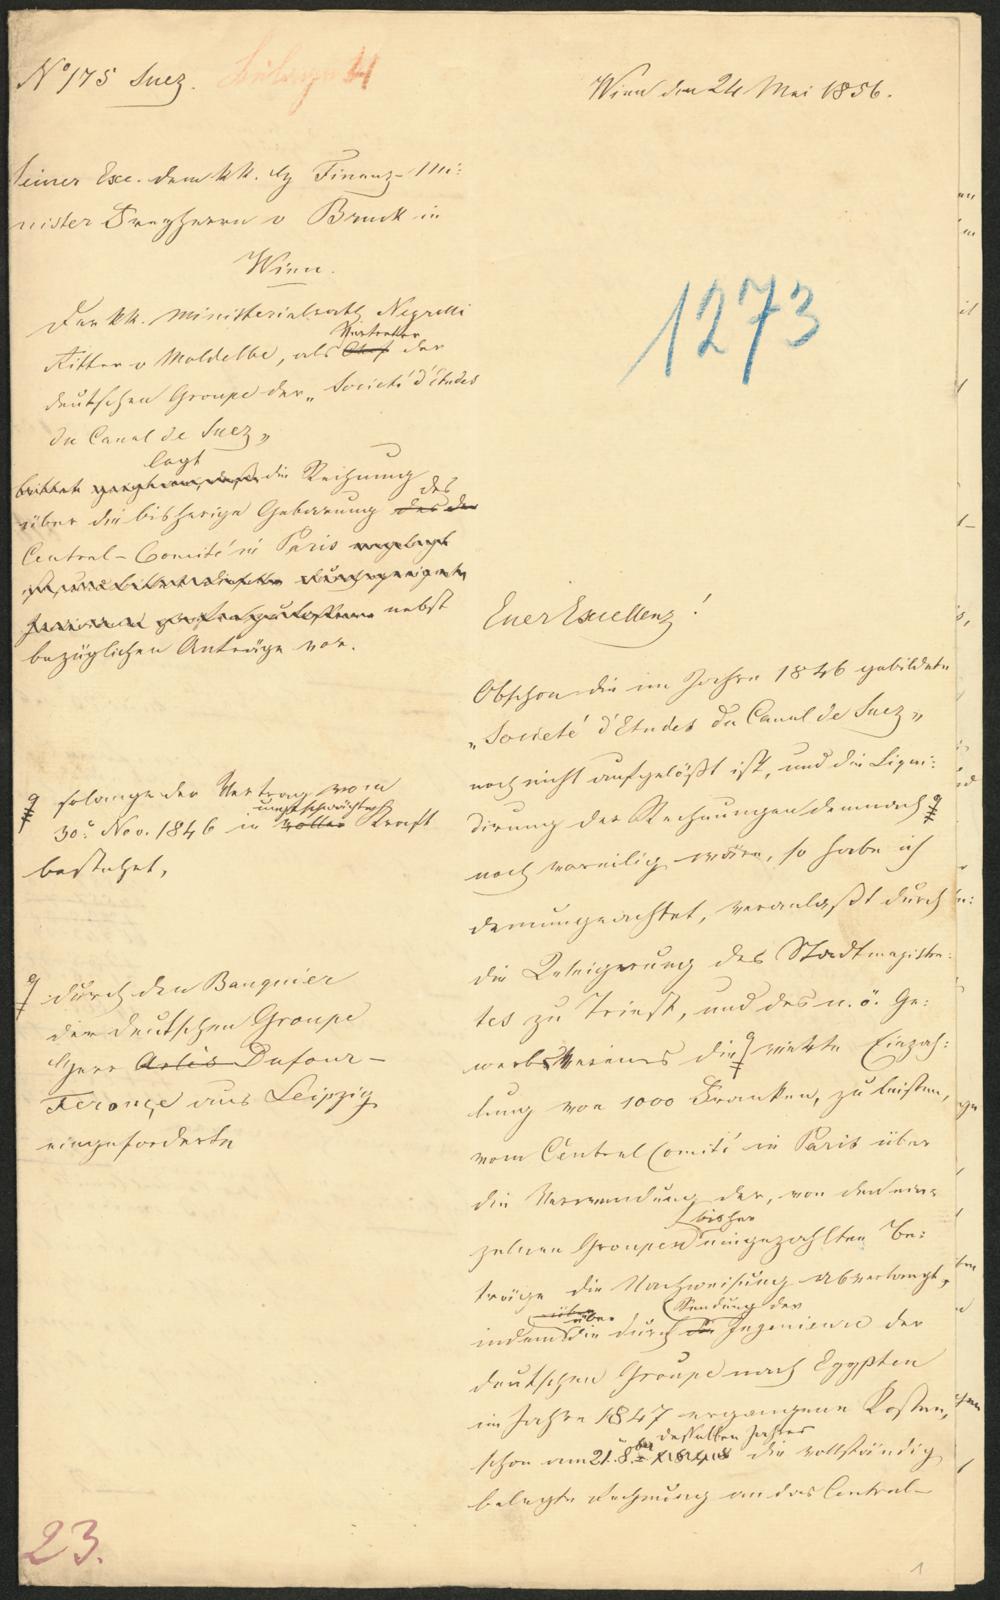 No 175 Suez. Beilagen 4
Wien den 24 Mai 1856.
Seiner Exc. dem kk. H Finanz-Mi:
nister Freyherrn v Bruck in
Wien.
Der kk. Ministerialrath Negrelli
Vertreter
Ritter v Moldelbe, als Chef der
deutschen Groupe der „Societé d'Etudes
du Canal de Suez„
legt
die Rechnung
des
über die bisherige Gebarung des der
Central-Comité in Paris vorgelegt
nebst
bezüglichen Anträge vor.
1273
Euer Excellenz!
Obschon die im Jahre 1846 gebildete
„Societé d'Etudes du Canal de Suez„
noch nicht aufgelößt ist, und die Liqui:
dirung der Rechnungen demnach
noch voreilig wäre, so habe ich
demungeachtet, veranlaßt durch
die Weigerung des Stadtmagistra:
tes zu Triest, und des n. ö. Ge:
werbsvereines die vierte Einzah:
lung von 1000 Franken, zu leisten,
vom Central Comité in Paris über
die Verwendung der, von den ein=
bisher
zelnen Groupen eingezahlten Be:
träge die Nachweisung abverlangt,
über Sendung der
indem die durch die Ingenieure der
deutschen Groupe nach Egypten
im Jahre 1847 ergangene Kosten,
desselben Jahres
schon am 21. 8ber die vollständig
belegte Rechnung an das Central-
solange der Vertrag vom
ungeschwächter
30t Nov. 1846 in voller Kraft
bestehet,
durch den Banquier
der deutschen Groupe
Herr Dufour-
Feronçe aus Leipzig
eingeforderte
23.
1